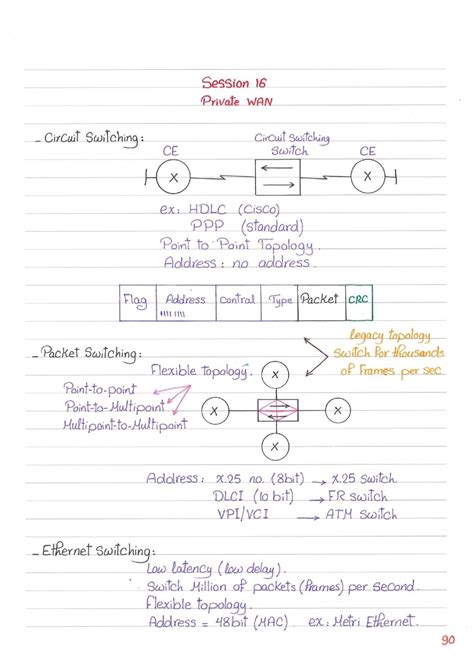 Session 16
Private WAN
- Circuit Switching:
CE
Circuit Switching
Switch
CE
X
X
ex: HDLC (Cisco)
PPP (Standard)
Point to Point Topology.
Address: no address.
Flag Address Control Type Packet CRC
1111 1111
legacy topology
Switch for thousands
of Frames per sec
- Packet Switching:
Flexible topology.
X
Point-to-point
Point-to-Multipoint
Multipoint-to-Multipoint
X
X
X
Address: X.25 no. (8bit) → X.25 Switch
DLCI (10 bit) → FR switch
VPI/VCI → ATM Switch
- Ethernet Switching:
Low latency (low delay).
Switch Million of packets (frames) per second.
Flexible topology.
Address = 48bit (MAC) ex: Metri Ethernet.
90